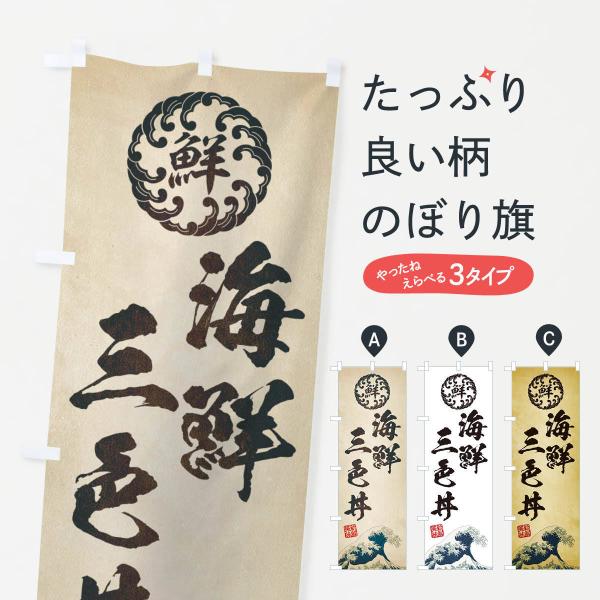 鮮
海鮮
三色丼
たっぷり
良い柄
のぼり旗
やったね
えらべる
3タイプ
A
B
C
鮮
海鮮
三色丼
鮮
海鮮
三色丼
鮮
海鮮
三色丼